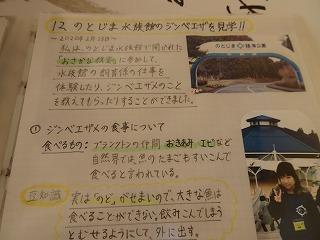 12. のとじま水族館のジンベエザメを見学!!
〜2020年2月23日〜
私は、のとじま水族館で開かれた
「おさかな教室」に参加して、
水族館の飼育係の仕事を
体験したり、ジンベエザメのこと
を教えてもらったりすることができました。
のとじま 臨海公園
① ジンベエザメの食事について
食べるもの：プランクトンの仲間 おきあみ エビなど
自然界では魚のたまごもすいこんで
食べると言われている。
豆知識
実は「のど」がせまいので、大きな魚は
食べることができない。飲みこんでしまう
とむせるようにして、外に出す。